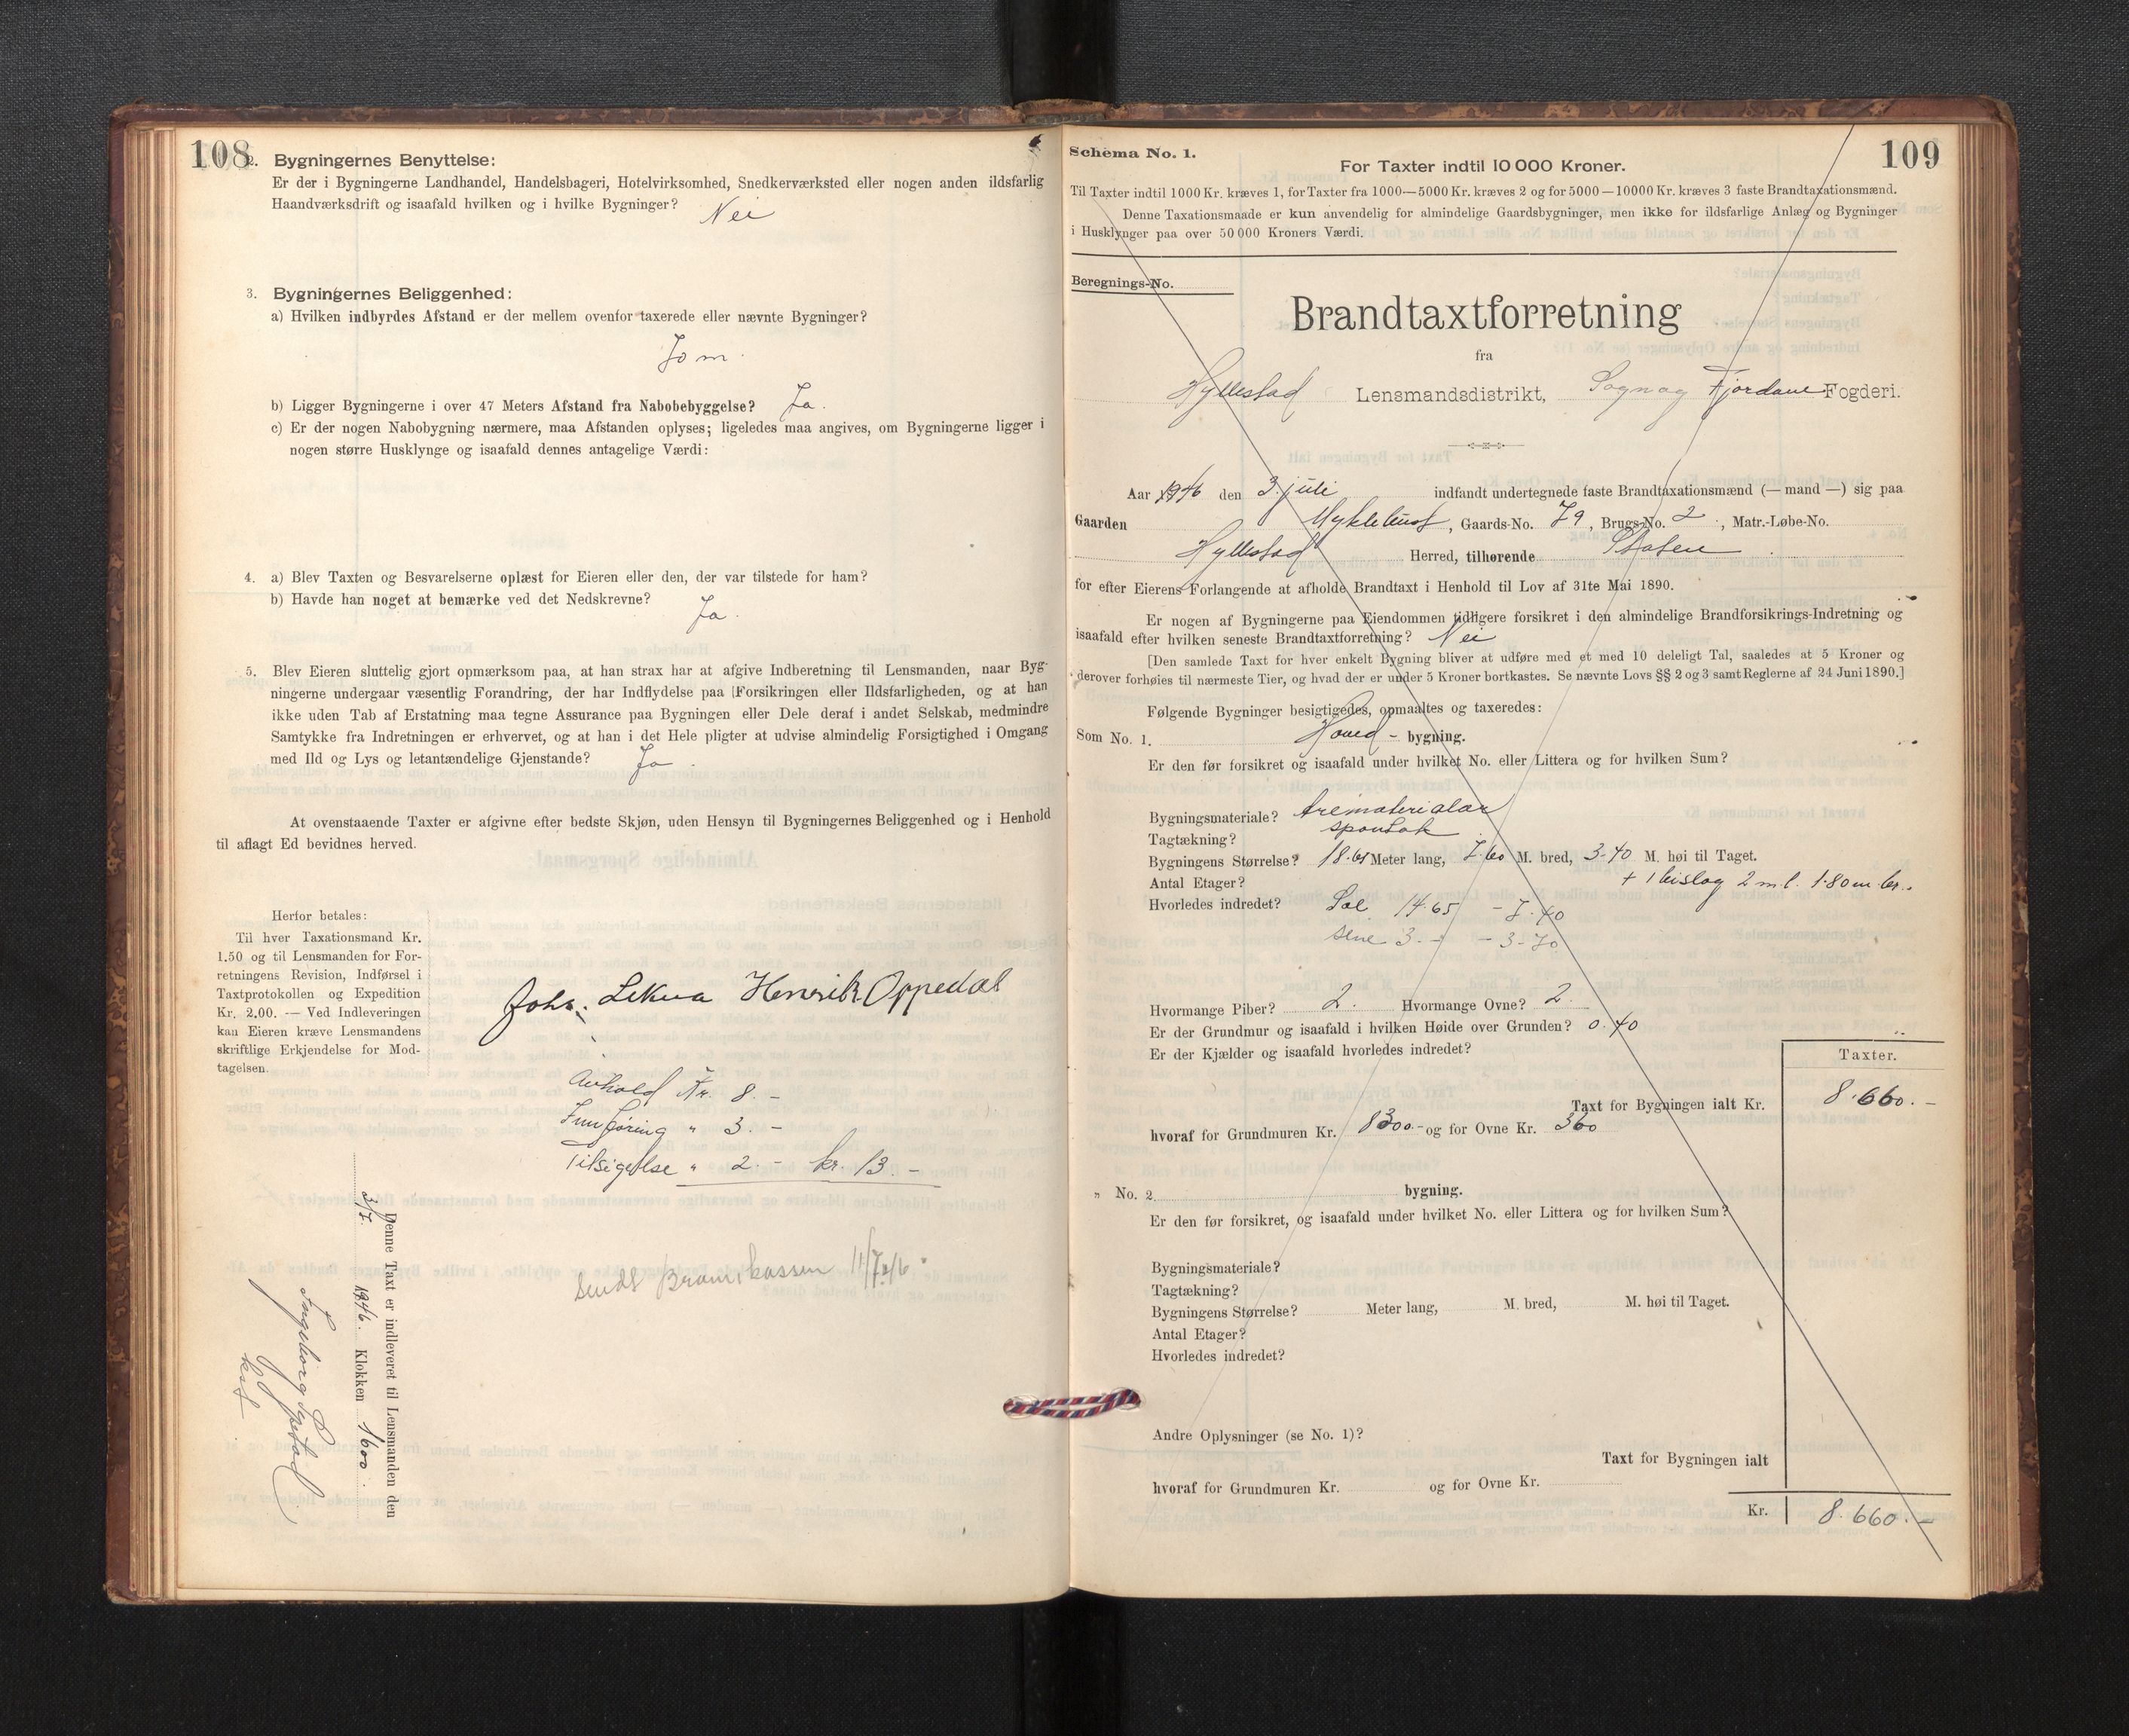 108
2. Bygningernes Benyttelse:
Er der i Bygningerne Landhandel, Handelsbageri, Hotelvirksomhed, Snedkerværksted eller nogen anden ildsfarlig
Haandværksdrift og isaafald hvilken og i hvilke Bygninger? Nei
3. Bygningernes Beliggenhed:
a) Hvilken indbyrdes Afstand er der mellem ovenfor taxerede eller nævnte Bygninger?
70 m.
b) Ligger Bygningerne i over 47 Meters Afstand fra Nabobebyggelse? Ja.
c) Er der nogen Nabobygning nærmere, maa Afstanden oplyses; ligeledes maa angives, om Bygningerne ligger i
nogen større Husklynge og isaafald dennes antagelige Værdi:
4. a) Blev Taxten og Besvarelserne oplæst for Eieren eller den, der var tilstede for ham?
b) Havde han noget at bemærke ved det Nedskrevne? Ja.
5. Blev Eieren sluttelig gjort opmærksom paa, at han strax har at afgive Indberetning til Lensmanden, naar Byg-
ningerne undergaar væsentlig Forandring, der har Indflydelse paa Forsikringen eller Ildsfarligheden, og at han
ikke uden Tab af Erstatning maa tegne Assurance paa Bygningen eller Dele deraf i andet Selskab, medmindre
Samtykke fra Indretningen er erhvervet, og at han i det Hele pligter at udvise almindelig Forsigtighed i Omgang
med Ild og Lys og letantændelige Gjenstande? Ja.
At ovenstaaende Taxter er afgivne efter bedste Skjøn, uden Hensyn til Bygningernes Beliggenhed og i Henhold
til aflagt Ed bevidnes herved.
Herfor betales:
Til hver Taxationsmand Kr.
1.50 og til Lensmanden for For-
retningens Revision, Indførsel i
Taxtprotokollen og Expedition
Kr. 2.00. — Ved Indleveringen
kan Eieren kræve Lensmandens
skriftlige Erkjendelse for Mod-
tagelsen.
Johs. Lekva Henrik Oppedal
Avhold Kr. 8. -
Innføring " 3. -
Tilsigelse " 2 - kr. 13. -
Sendt Brannkassen 11/7 46
Denne Taxt er indleveret til Lensmanden den
3/7. 1946. Klokken 1600.
Ingeborg
kst
109
Schema No. 1.
For Taxter indtil 10000 Kroner.
Til Taxter indtil 1000 Kr. kræves 1, for Taxter fra 1000—5000 Kr. kræves 2 og for 5000—10000 Kr. kræves 3 faste Brandtaxationsmænd.
Denne Taxationsmaade er kun anvendelig for almindelige Gaardsbygninger, men ikke for ildsfarlige Anlæg og Bygninger
i Husklynger paa over 50000 Kroners Værdi.
Beregnings-No.
Brandtaxtforretning
fra
Hyllestad Lensmandsdistrikt, Sogn og Fjordane Fogderi.
Aar 1946 den 3. juli indfandt undertegnede faste Brandtaxationsmænd (— mand —) sig paa
Gaarden Myklebust, Gaards-No. 79, Brugs-No. 2, Matr.-Løbe-No.
Hyllestad Herred, tilhørende Staten.
for efter Eierens Forlangende at afholde Brandtaxt i Henhold til Lov af 31te Mai 1890.
Er nogen af Bygningerne paa Eiendommen tidligere forsikret i den almindelige Brandforsikrings-Indretning og
isaafald efter hvilken seneste Brandtaxtforretning? Nei
[Den samlede Taxt for hver enkelt Bygning bliver at udføre med et med 10 deleligt Tal, saaledes at 5 Kroner og
derover forhøies til nærmeste Tier, og hvad der er under 5 Kroner bortkastes. Se nævnte Lovs §§ 2 og 3 samt Reglerne af 24 Juni 1890.]
Følgende Bygninger besigtigedes, opmaaltes og taxeredes:
Som No. 1. Hoved - bygning.
Er den før forsikret og isaafald under hvilket No. eller Littera og for hvilken Sum?
Bygningsmateriale? trematerialar
Tagtækning? spontak
Bygningens Størrelse? 18.65 Meter lang, 7.60 M. bred, 3-40 M. høi til Taget.
Antal Etager? + 1 bislag 2 m l. 1.80 m br.
Hvorledes indredet? Sal 14.65 - 7.40
Scene 3. - - 3-70
Hvormange Piber? 2. Hvormange Ovne? 2.
Er der Grundmur og isaafald i hvilken Høide over Grunden? 0.40
Er der Kjælder og isaafald hvorledes indredet?
Taxter.
Taxt for Bygningen ialt Kr. 8.660. -
hvoraf for Grundmuren Kr. 8300.- og for Ovne Kr. 360
„ No. 2 bygning.
Er den før forsikret, og isaafald under hvilket No. eller Littera og for hvilken Sum?
Bygningsmateriale?
Tagtækning?
Bygningens Størrelse? Meter lang, M. bred, M. høi til Taget.
Antal Etager?
Hvorledes indredet?
Andre Oplysninger (se No. 1)?
Taxt for Bygningen ialt
hvoraf for Grundmuren Kr. og for Ovne Kr.
Kr. 8.660. -